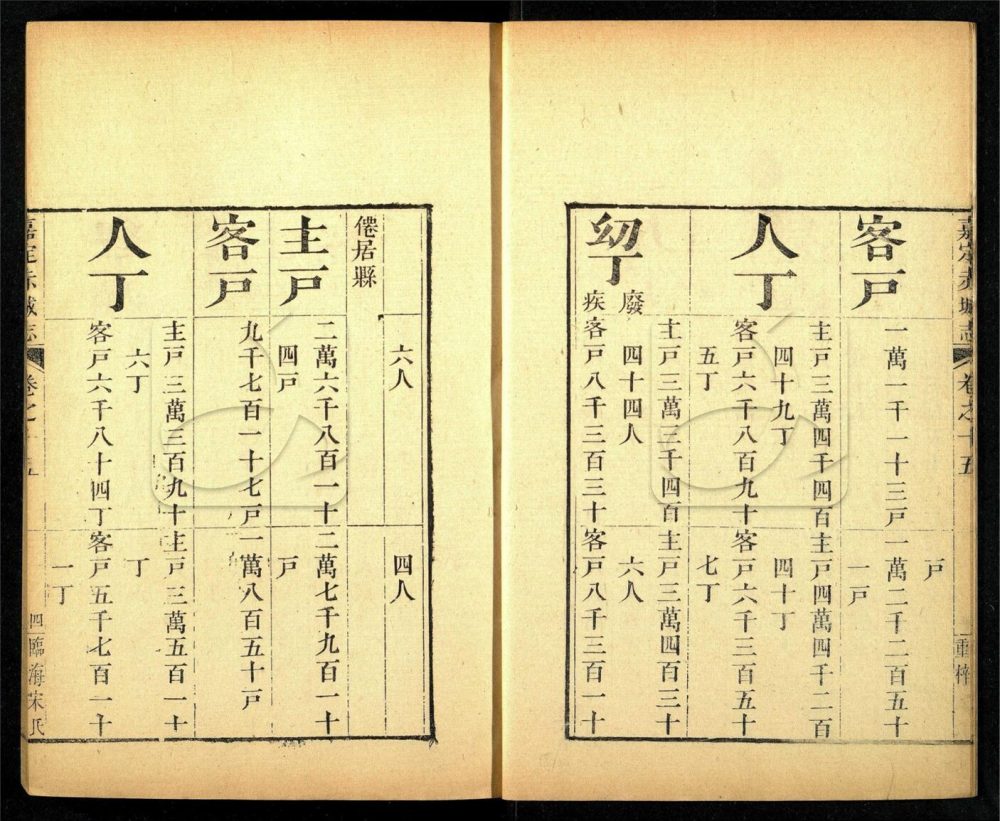 嘉定赤城志 卷之十五 重梓
戶
客戶 一萬一千一十三戶 一萬二千二百五十
一戶
主戶三萬四千四百 主戶四萬四千二百
人丁 四十九丁 四十丁
客戶六千八百九十 客戶六千三百五十
五丁 七丁
主戶三萬三千四百 主戶三萬四百三十
幼丁 廢疾 四十四人 六人
客戶八千三百三十 客戶八千三百一十
六人 四人
僊居縣
主戶 二萬六千八百一十 二萬七千九百一十
四戶 戶
客戶 九千七百一十七戶 一萬八百五十戶
主戶三萬三百九十 主戶三萬五百一十
人丁 六丁 丁
客戶六千八十四丁 客戶五千七百一十
一丁
嘉定赤城志 卷之 五 四 臨海宋氏